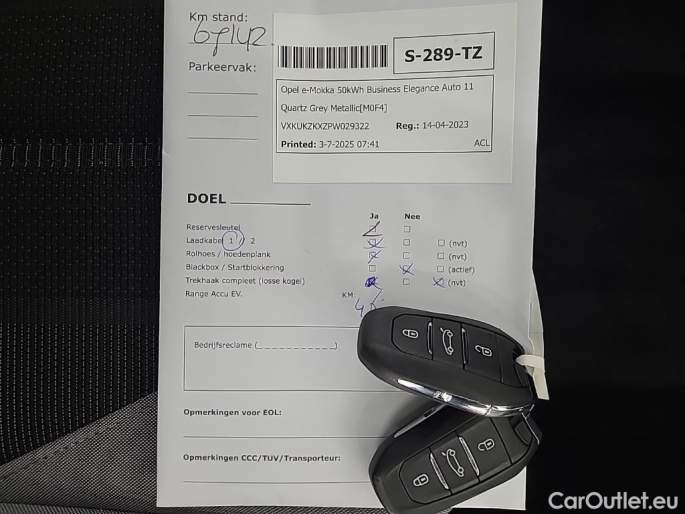 Km stand:
67142
S-289-TZ
Parkeervak:
Opel e-Mokka 50kWh Business Elegance Auto 11
Quartz Grey Metallic[M0F4]
VXKUKZKXZPW029322 Reg.: 14-04-2023
Printed: 3-7-2025 07:41 ACL
DOEL
Ja Nee
Reservesleutel
Laadkabel 1 / 2 (nvt)
Rolhoes / hoedenplank (nvt)
Blackbox / Startblokkering (actief)
Trekhaak compleet (losse kogel) (nvt)
Range Accu EV. KM
Bedrijfsreclame (____________)
Opmerkingen voor EOL:
Opmerkingen CCC/TUV/Transporteur:
CarOutlet.eu